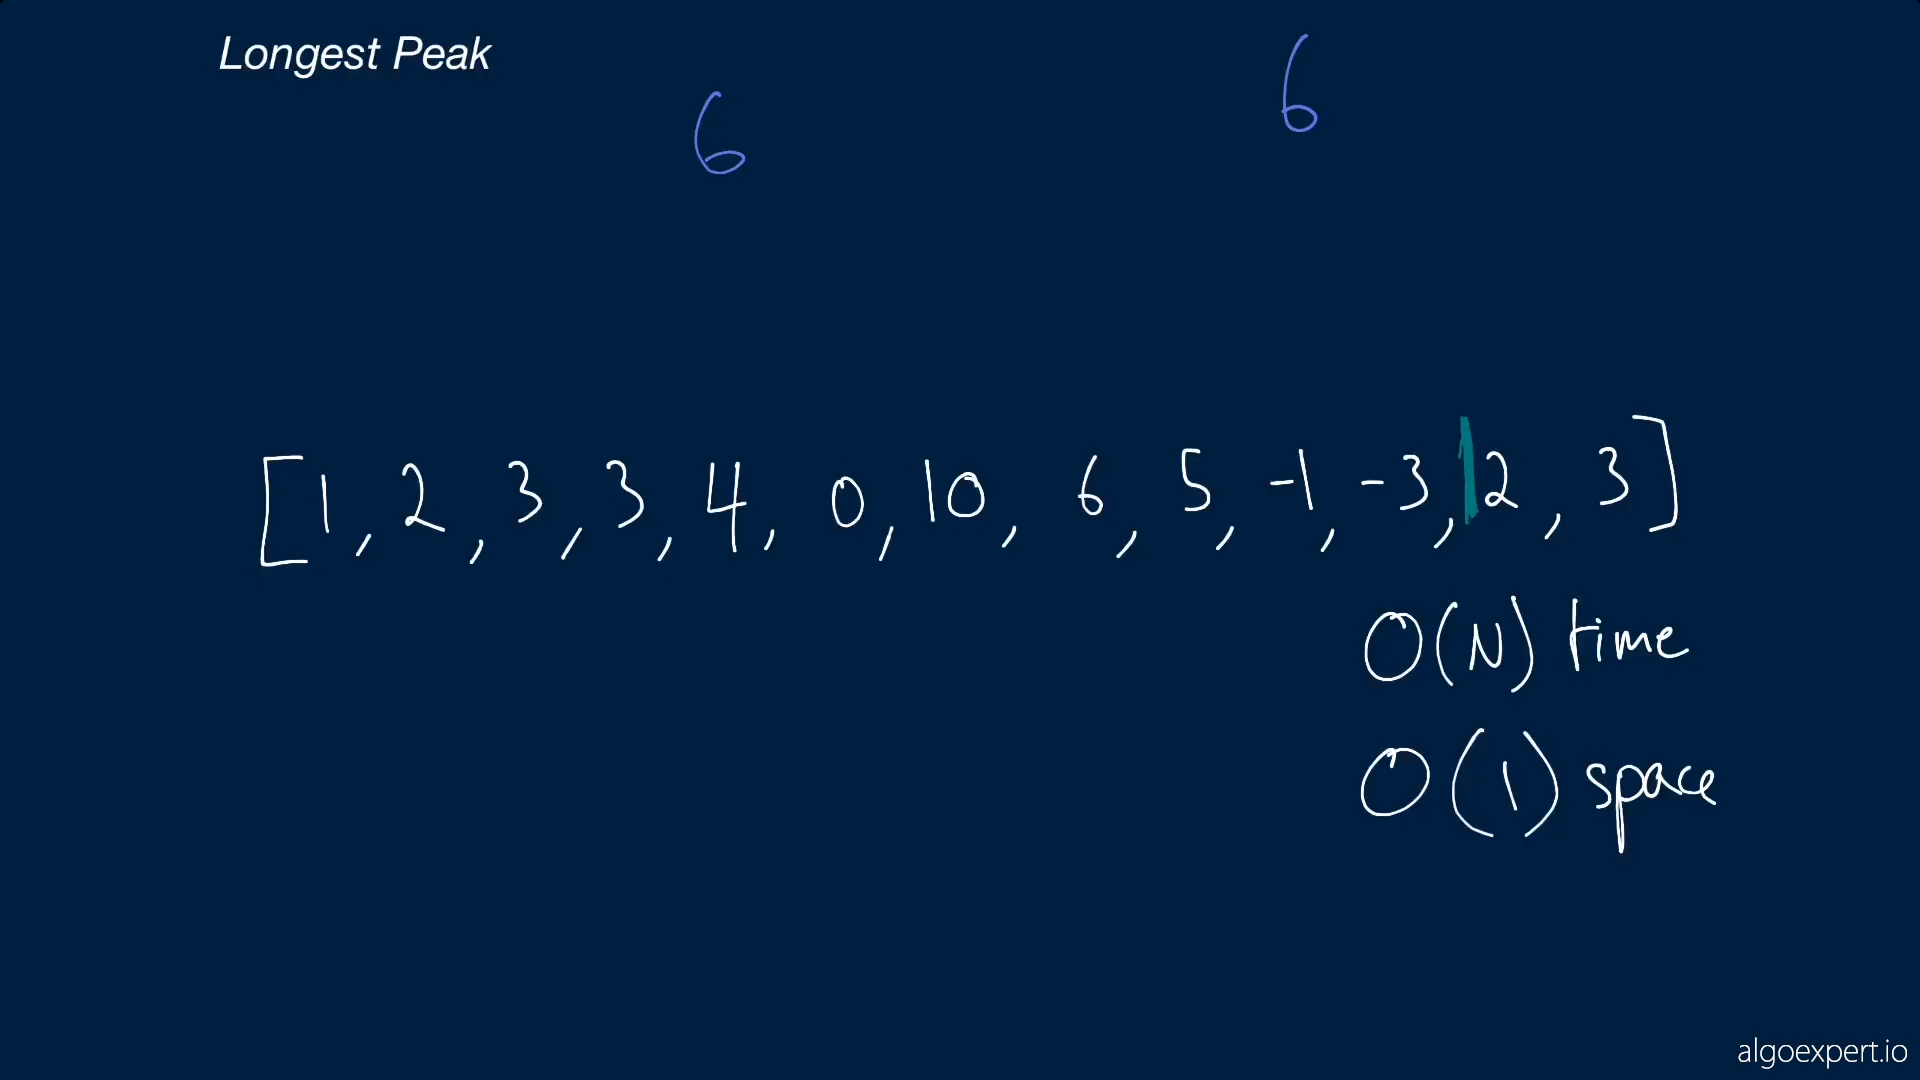 Longest Peak
6
6
[1, 2, 3, 3, 4, 0, 10, 6, 5, -1, -3, 2, 3]
O(N) time
O(1) space
algoexpert.io